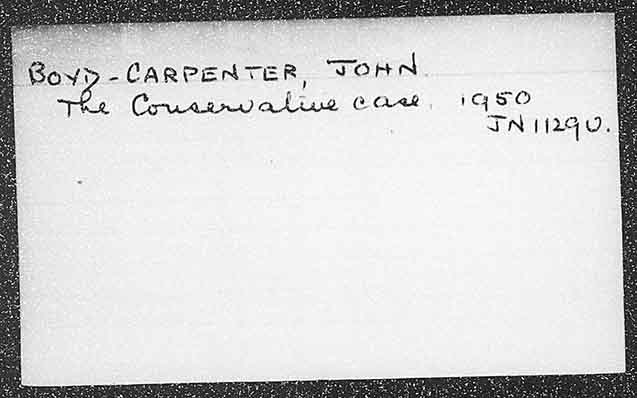 BOYD-CARPENTER, JOHN.
The Conservative case. 1950
JN1129U.